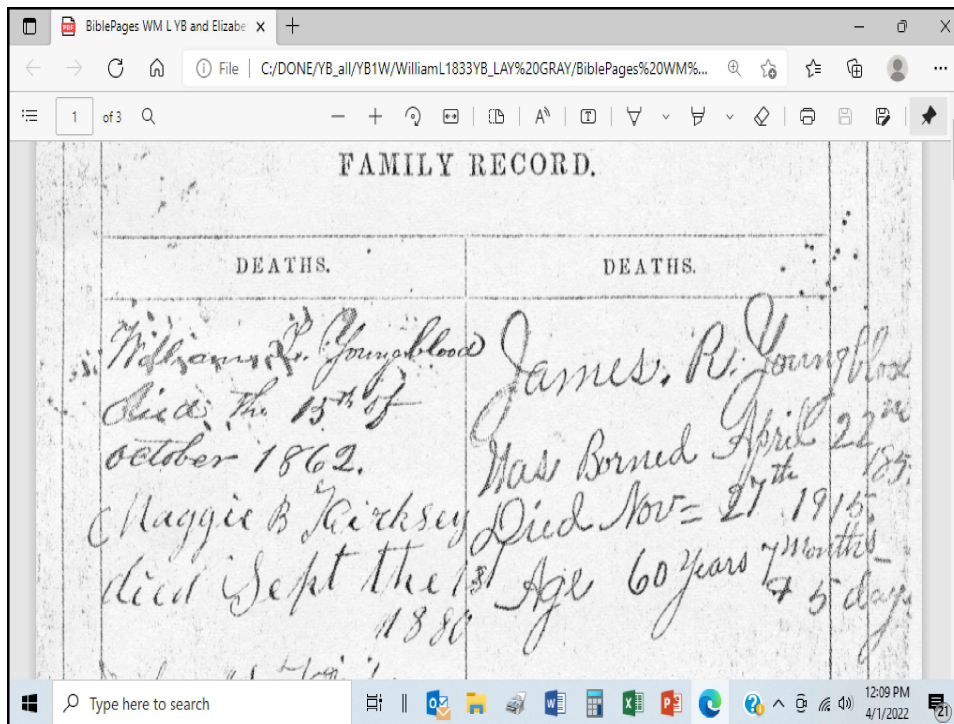 BiblePages WM L YB and Elizabe
File | C:/DONE/YB_all/YB1W/WilliamL1833YB_LAY%20GRAY/BiblePages%20WM%...
1 of 3
FAMILY RECORD.
DEATHS.
William Youngblood
Died the 15th of
october 1862.
Maggie B Kirksey
died Sept the 1st
1880
DEATHS.
James. R. Youngblood
Was Borned April 22nd
185
Died Nov= 27th 1915.
Age 60 Years 7 Months
& 5 days
Type here to search
12:09 PM
4/1/2022
21